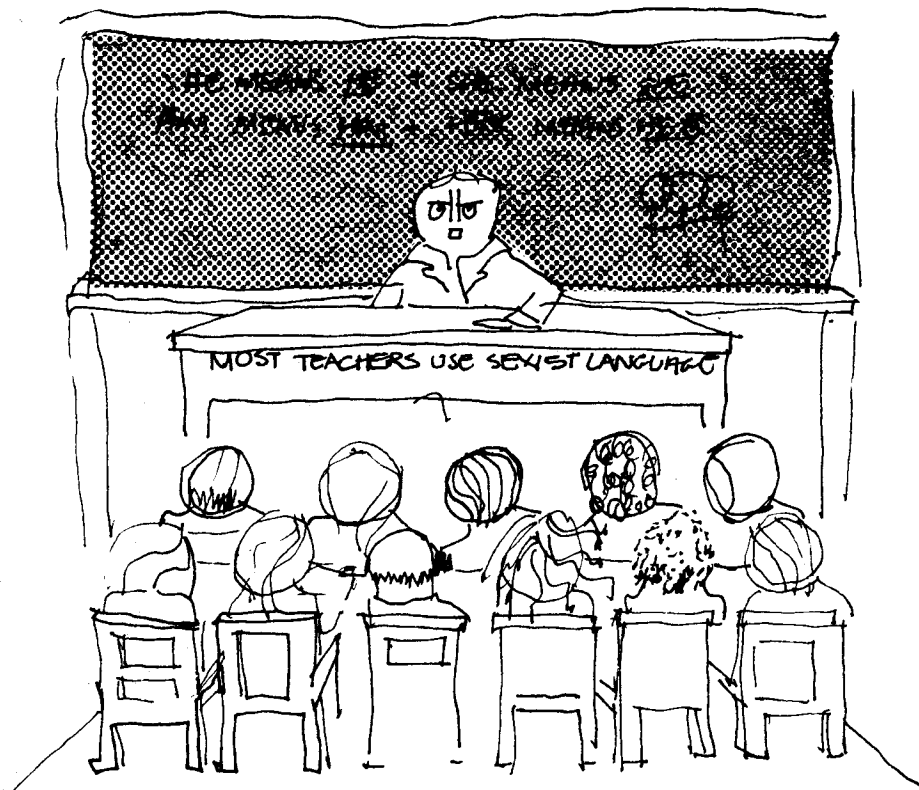 HE MEANS HE + SHE MEANS SHE
HIM MEANS HIM + HER MEANS HER
MOST TEACHERS USE SEXIST LANGUAGE